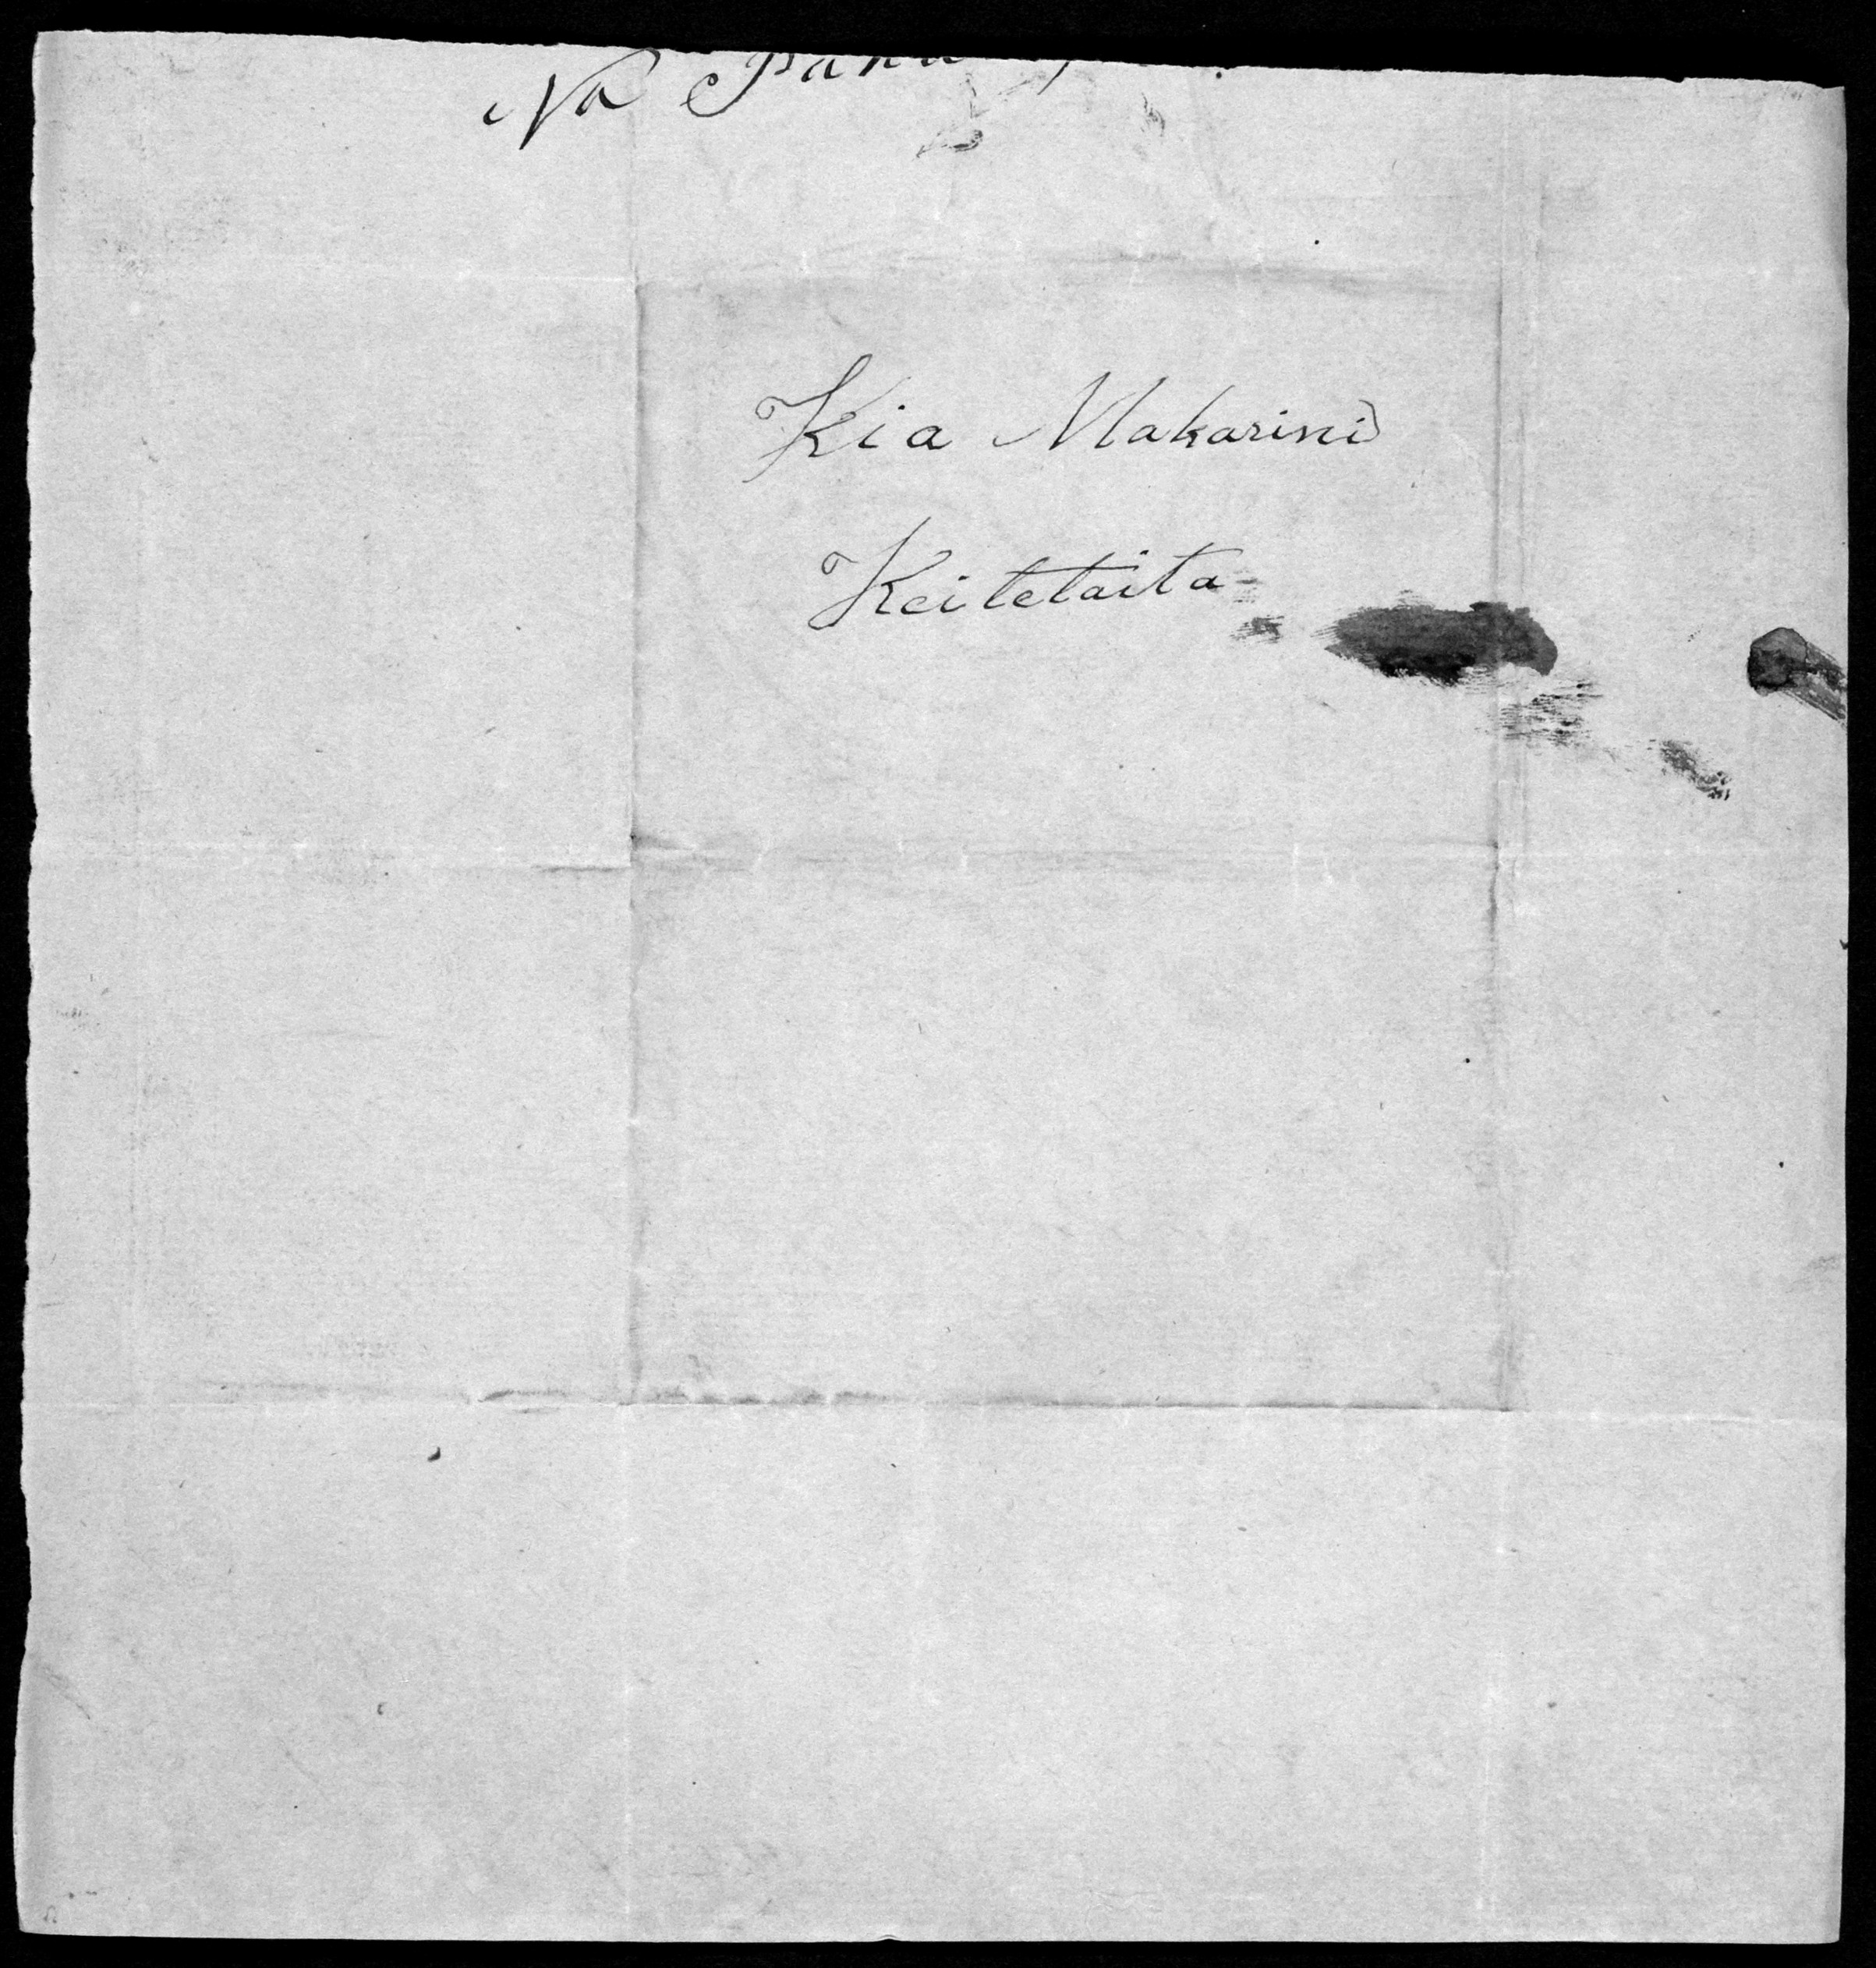 Na
Kia Makarini
Kei te taita